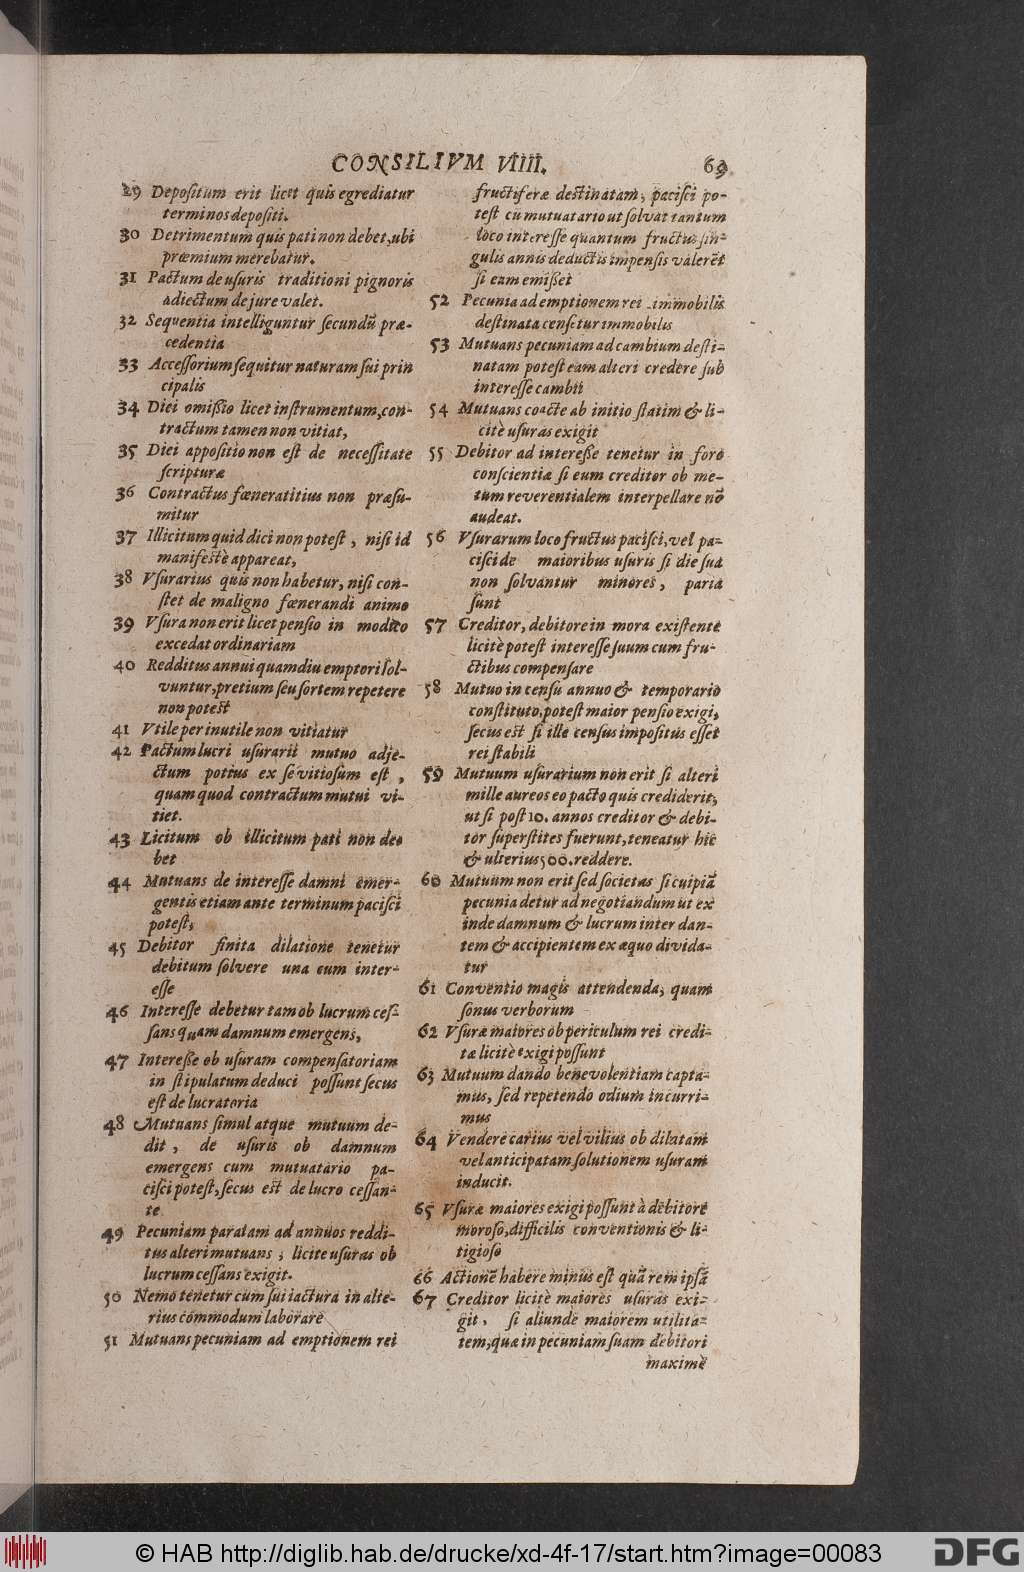 CONSILIVM VIIII. 69
29 Depositum erit licet quis egrediatur
terminos depositi.
30 Detrimentum quis pati non debet, ubi
præmium merebatur.
31 Pactum de usuris traditioni pignoris
adiectum de jure valet.
32 Sequentia intelliguntur secundũ præ-
cedentia
33 Accessorium sequitur naturam sui prin
cipalis
34 Diei omißio licet instrumentum, con-
tractum tamen non vitiat,
35 Diei appositio non est de necessitate
scripturæ
36 Contractus fœneratitius non præsu-
mitur
37 Illicitum quid dici non potest, nisi id
manifestè appareat,
38 Vsurarius quis non habetur, nisi con-
stet de maligno fœnerandi animo
39 Vsura non erit licet pensio in modico
excedat ordinariam
40 Redditus annui quamdiu emptori sol-
vuntur, pretium seu sortem repetere
non potest
41 Vtile per inutile non vitiatur
42 Pactum lucri usurarii mutuo adje-
ctum potius ex se vitiosum est,
quam quod contractum mutui vi-
tiet.
43 Licitum ob illicitum pati non de
bet
44 Mutuans de interesse damni emer-
gentis etiam ante terminum pacisci
potest,
45 Debitor finita dilatione tenetur
debitum solvere una cum inter-
esse
46 Interesse debetur tam ob lucrum ces-
sans quam damnum emergens,
47 Intereße ob usuram compensatoriam
in stipulatum deduci possunt secus
est de lucratoria
48 Mutuans simul atque mutuum de-
dit, de usuris ob damnum
emergens cum mutuatario pa-
cisci potest, secus est de lucro cessan-
te
49 Pecuniam paratam ad annuos reddi-
tus alteri mutuans, licite usuras ob
lucrum cessans exigit.
50 Nemo tenetur cum sui iactura in alte-
rius commodum laborare
51 Mutuans pecuniam ad emptionem rei
fructiferæ destinatam, pacisci po-
test cũ mutuatario ut solvat tantum
loco interesse quantum fructus sin-
gulis annis deductis impensis valerẽt
si eam emißet
52 Pecunia ad emptionem rei immobilis
destinata censetur immobilis
53 Mutuans pecuniam ad cambium desti-
natam potest eam alteri credere sub
interesse cambii
54 Mutuans coacte ab initio statim & li-
citè usuras exigit
55 Debitor ad intereße tenetur in foro
conscientiæ si eum creditor ob me-
tum reverentialem interpellare nõ
audeat.
56 Vsurarum loco fructus pacisci, vel pa-
cisci de maioribus usuris si die sua
non solvantur minores, paria
sunt
57 Creditor, debitore in mora existente
licitè potest interesse suum cum fru-
ctibus compensare
58 Mutuo in censu annuo & temporario
constituto, potest maior pensio exigi,
secus est si ille census impositus esset
rei stabili
59 Mutuum usurarium non erit si alteri
mille aureos eo pacto quis crediderit,
ut si post 10. annos creditor & debi-
tor superstites fuerunt, teneatur hic
& ulterius 500. reddere.
60 Mutuum non erit sed societas si cuipiã
pecunia detur ad negotiandum ut ex
inde damnum & lucrum inter dan-
tem & accipientem ex æquo divida-
tur
61 Conventio magis attendenda, quam
sonus verborum
62 Vsuræ maiores ob periculum rei credi-
tæ licitè exigi possunt
63 Mutuum dando benevolentiam capta-
mus, sed repetendo odium incurri-
mus
64 Vendere carius vel vilius ob dilatam
vel anticipatam solutionem usuram
inducit.
65 Vsuræ maiores exigi possunt à debitore
moroso, difficilis conventionis & li-
tigioso
66 Actionẽ habere minus est quã rem ipsã
67 Creditor licitè maiores usuras exi-
git, si aliunde maiorem utilita-
tem, quæ in pecuniam suam debitori
maximè
© HAB http://diglib.hab.de/drucke/xd-4f-17/start.htm?image=00083
DFG